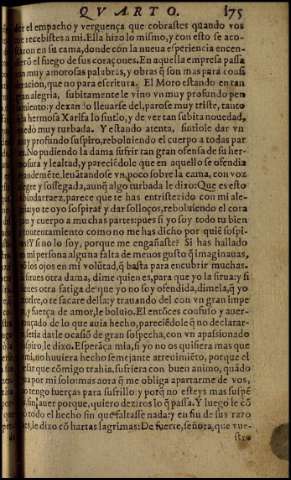 QVARTO. 175
der el empacho y verguença que cobrastes quando vos
recebistes a mi. Ella hizo lo mismo, y con esto se aco-
ron en su cama, donde con la nueua esperiencia encen-
rõ el fuego de sus coraçones. En aquella empresa passa
n muy amorosas palabras, y obras q̃ son mas para cons
racion, que no para escritura. El Moro estando en tan
an alegria, subitamente le vino vn muy profundo pen
miento: y dexando lleuarse del, parose muy triste, tanto
hermosa Xarifa lo sintio, y de ver tan subita nouedad,
edo muy turbada. Y estando atenta, sintiole dar vn
muy profundo suspiro, reboluiendo el cuerpo a todas par
No pudiendo la dama sufrir tan gran ofensa de su her-
osura y lealtad, y pareciẽdole que en aquello se ofendia
andemẽte, leuãtandose vn poco sobre la cama, con voz
egre y sossegada, aunq̃ algo turbada le dixo: Que es esto
bindarraez, parece que te has entristezido con mi ale-
a: yo te oyo sospirar y dar solloços, reboluiendo el cora
y cuerpo a muchas partes: pues si yo soy todo tu bien
contentamiento como no me has dicho por quiẽ sospi-
s? Y si no lo soy, porque me engañaste? Si has hallado
mi persona alguna falta de menos gusto q̃ imaginauas,
los ojos en mi volũtad, q̃ basta para encubrir muchas.
sirues otra dama, dime quien es, para que yo la sirua: y si
es otra fatiga de que yo no soy ofendida, dimela, q̃ yo
orire, o te sacare della: y trauando del con vn gran impe
y fuerça de amor, le boluio. El entõces confuso y auer-
nçado de lo que auia hecho, pareciẽdole q̃ no declarar-
eria darle ocasiõ de gran sospecha, con vn apassionado
spiro le dixo. Esperãça mia, si yo no os quisiera mas que
mi, no huuiera hecho semejante atreuimiẽto, porque el
que cõmigo trahia, sufriera con buen animo, quãdo
por mi solo: mas aora q̃ me obliga apartarme de vos,
tengo fuerças para sufrillo: y porq̃ no esteys mas suspẽ
sin auer porque, quiero deziros lo q̃ passa. Y luego le cõ
todo el hecho sin que faltasse nada: y en fin de sus razo
es, le dixo cõ hartas lagrimas: De suerte, señora, que vue-
stro